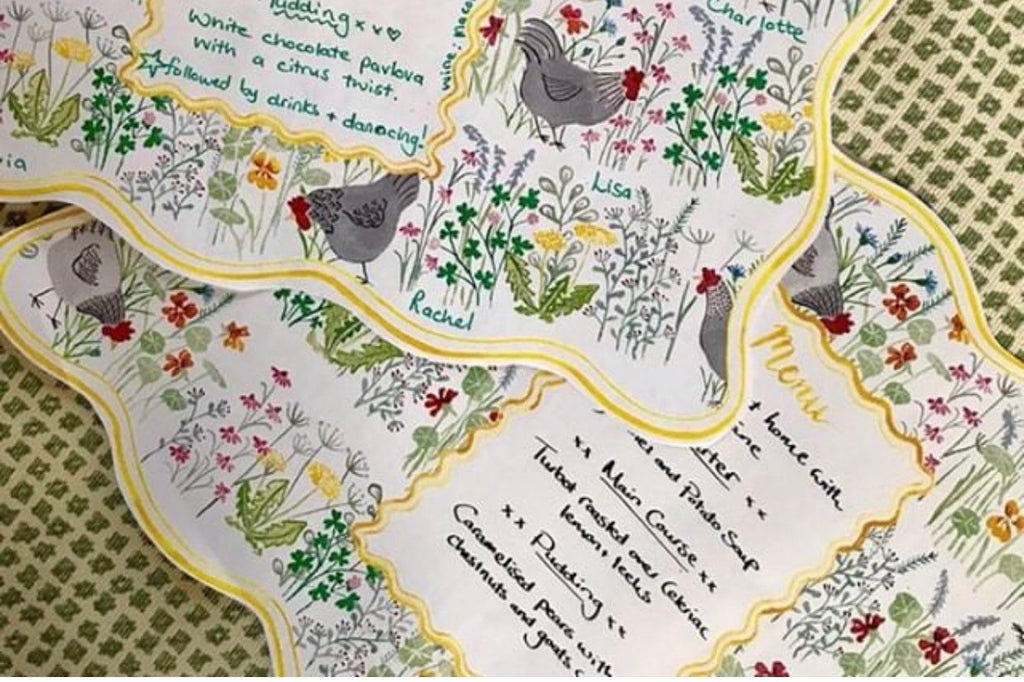 Pudding x x ♡
White chocolate pavlova
with a citrus twist.
followed by drinks + danacing!
wine:
Charlotte
Lisa
Rachel
Menu
+ home with
x x
and Potato Soup
x x Main Course x x
Turbot roasted over Celeriac
lemon, leeks
x x Pudding x x
Caramelised pears with
chestnuts and goats